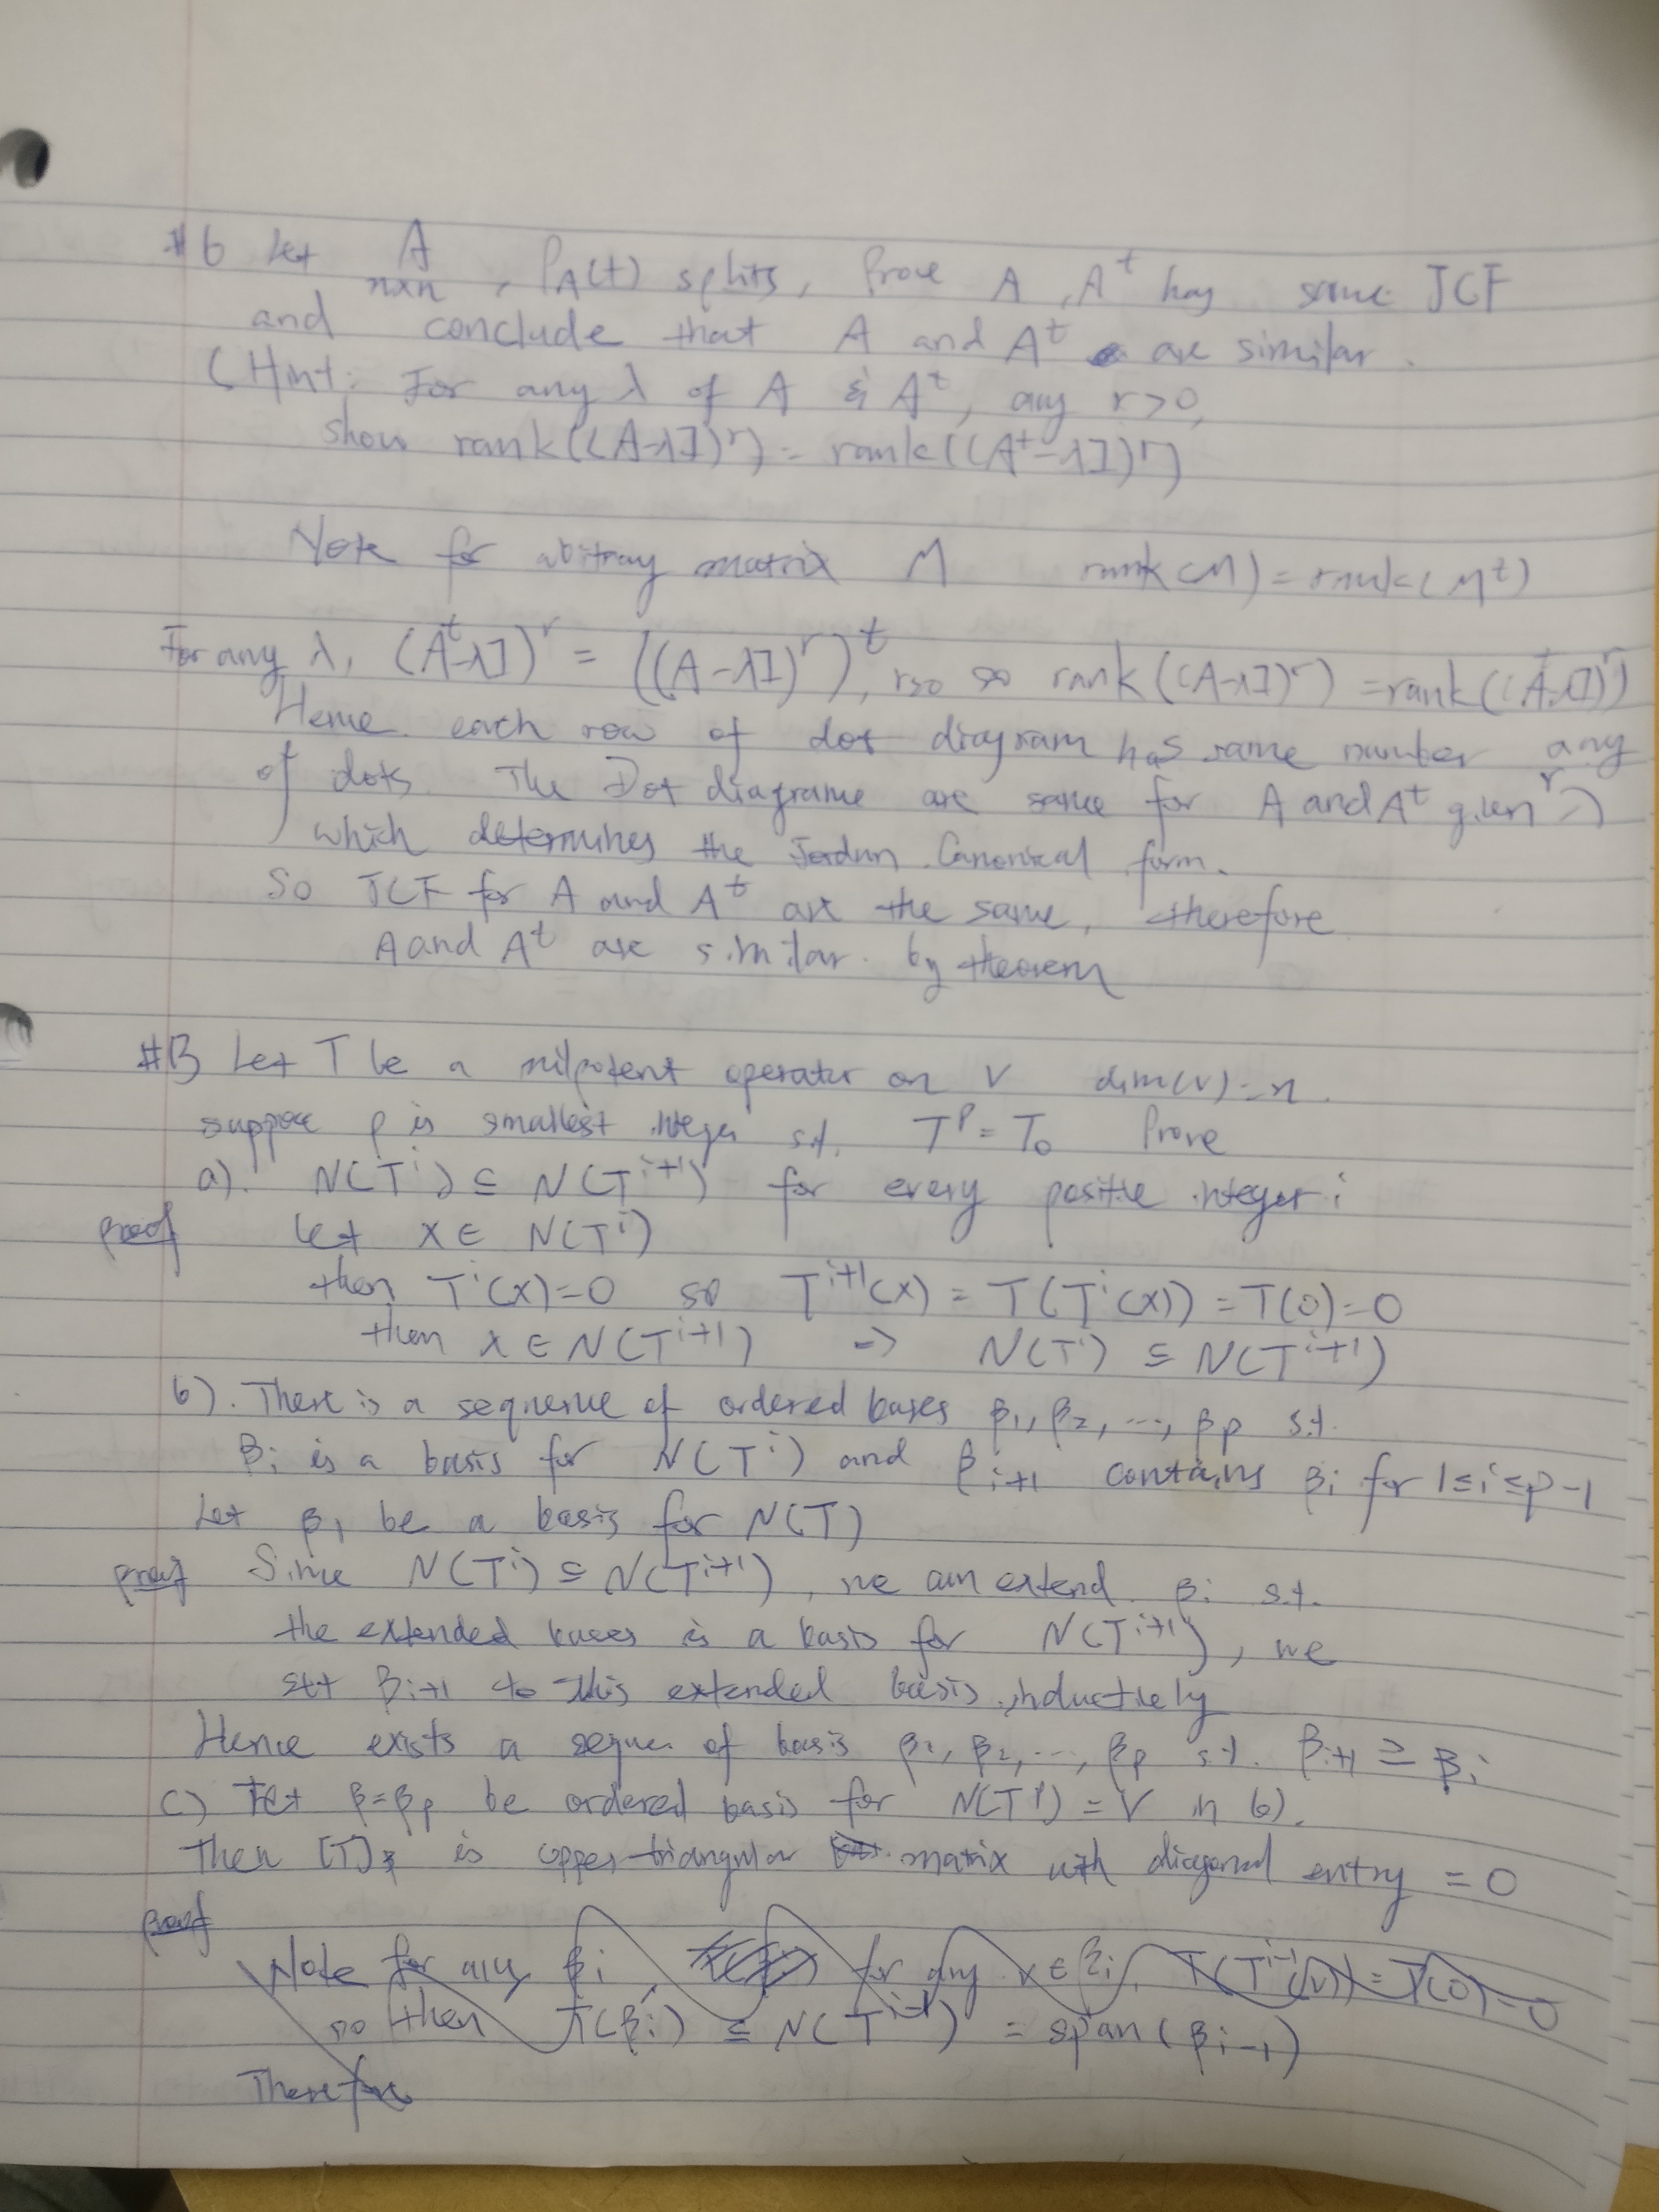 #6 Let A
nxn , P_A(t) splits, Prove A, A^t has same JCF
and conclude that A and A^t are similar.
(Hint: For any λ of A & A^t, any r>0,
show rank((A-λI)^r) = rank((A^t-λI)^r)
Note for abitray matrix M rank(M) = rank(M^t)
For any λ, (A^t-λI)^r = ((A-λI)^r)^t, r>0 so rank((A-λI)^r) = rank((A^t-λI)^r)
Hence each row of dot diagram has same number any
of dots. The Dot diagrame are same for A and A^t given r)
which determines the Jordan Canonical form.
So JCF for A and A^t are the same, therefore
A and A^t are similar. by theorem
#13 Let T be a nilpotent operator on V dim(V)=n.
suppose p is smallest integer s.t. T^p = T_0 Prove
a). N(T^i) ⊆ N(T^{i+1}) for every positive integer i
proof let x ∈ N(T^i)
then T^i(x)=0 so T^{i+1}(x) = T(T^i(x)) = T(0)=0
then x ∈ N(T^{i+1}) => N(T^i) ⊆ N(T^{i+1})
b). There is a sequence of ordered bases β_1, β_2, ..., β_p s.t.
β_i is a basis for N(T^i) and β_{i+1} contains β_i for 1≤i≤p-1
Let β_1 be a basis for N(T)
proof Since N(T^i) ⊆ N(T^{i+1}), we can extend β_i s.t.
the extended bases is a basis for N(T^{i+1}), we
set β_{i+1} to this extended basis inductively
Hence exists a seque. of basis β_1, β_2, ..., β_p s.t. β_{i+1} ⊇ β_i
c) Let β=β_p be ordered basis for N(T^p) = V in b).
Then [T]_β is upper-triangular matrix with diagonal entry = 0
proof
Note for any β_i, for any x ∈ β_i, T(T^{i-1}(v)) = T(0) = 0
so then T(β_i) ⊆ N(T^{i-1}) = span(β_{i-1})
Therefore